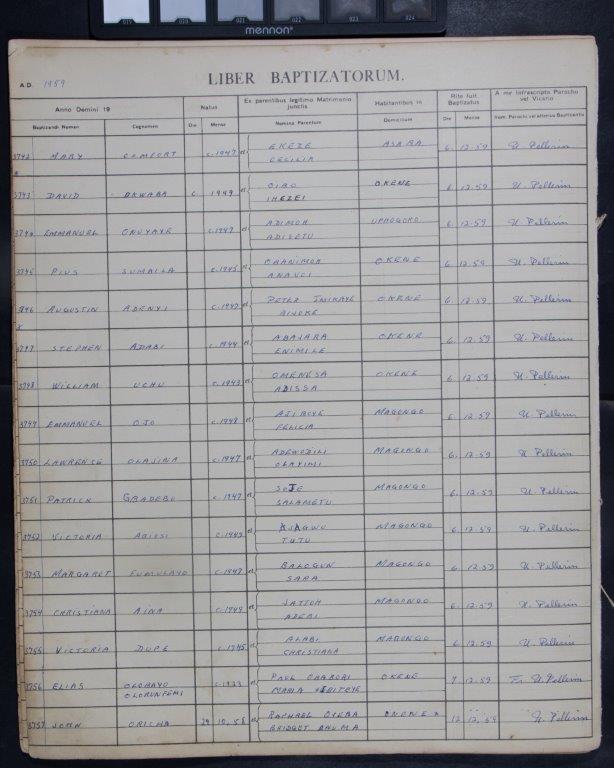 019 020 021 022 023 024
mennon
LIBER BAPTIZATORUM.
A.D. 1959
Anno Domini 19 Natus Ex parentibus legitimo Matrimonio junctis Habitantibus in Rite fuit Baptizatus A me infrascripto Parocho vel Vicario
Baptizandi Nomen Cognomen Die Mense Nomina Parentum Domicilium Die Mense Nom. Parochi vel alterius Baptizantis
3742 MARY COMFORT c.1947 et EKEZE ASABA 6 12.59 U. Pellerin
CECILIA
3743 DAVID c. 1949 et OIBO OKENE 6 12.59 U. Pellerin
IHEZEI
3744 EMMANUEL ONUYAYE c.1947 et ADIMOH 6 12.59 U. Pellerin
ADISETU
3745 PIUS SUMAILA c.1945 et OBANIMOH OKENE 6 12.59 U. Pellerin
3746 AUGUSTIN ADENYI et PETER OKENE 6 12.59 U. Pellerin
x
3747 STEPHEN ADABI c.1944 et ABAJARA OKENE 6 12.59 U. Pellerin
ENIMILE
3748 WILLIAM UCHU c.1943 et OMENESA OKENE 6 12.59 U. Pellerin
ADISSA
3749 EMMANUEL OJO c.1948 et AJIBOYE MAGONGO 6 12.59 U. Pellerin
FELICIA
3750 LAWRENCE OLAJINA c.1947 et MAGONGO 6 12.59 U. Pellerin
OLAYIMI
3751 PATRICK GBADEBO c.1947 et SOJE MAGONGO 6 12.59 U. Pellerin
SALAMETU
3752 VICTORIA ABIOSI c.1949 et AJAGWU MAGONGO 6 12.59 U. Pellerin
TUTU
3753 MARGARET FUMULAYO c.1947 et BALOGUN MAGONGO 6 12.59 U. Pellerin
SARA
3754 CHRISTIANA AINA c.1949 et JATTOH MAGONGO 6 12.59 U. Pellerin
ADEBI
3755 VICTORIA DUPE c.1945 et ALABI MAGONGO 6 12.59 U. Pellerin
CHRISTIANA
3756 ELIAS OLOBAYO c.1933 et PAUL OBABORI OKENE 7 12.59 Fr. U. Pellerin
OLORUNFEMI MARIA
3757 JOHN ORICHA 29 10.58 et RACHAEL OYEBA 12 12.59 U. Pellerin
BRIDGET AHUMA